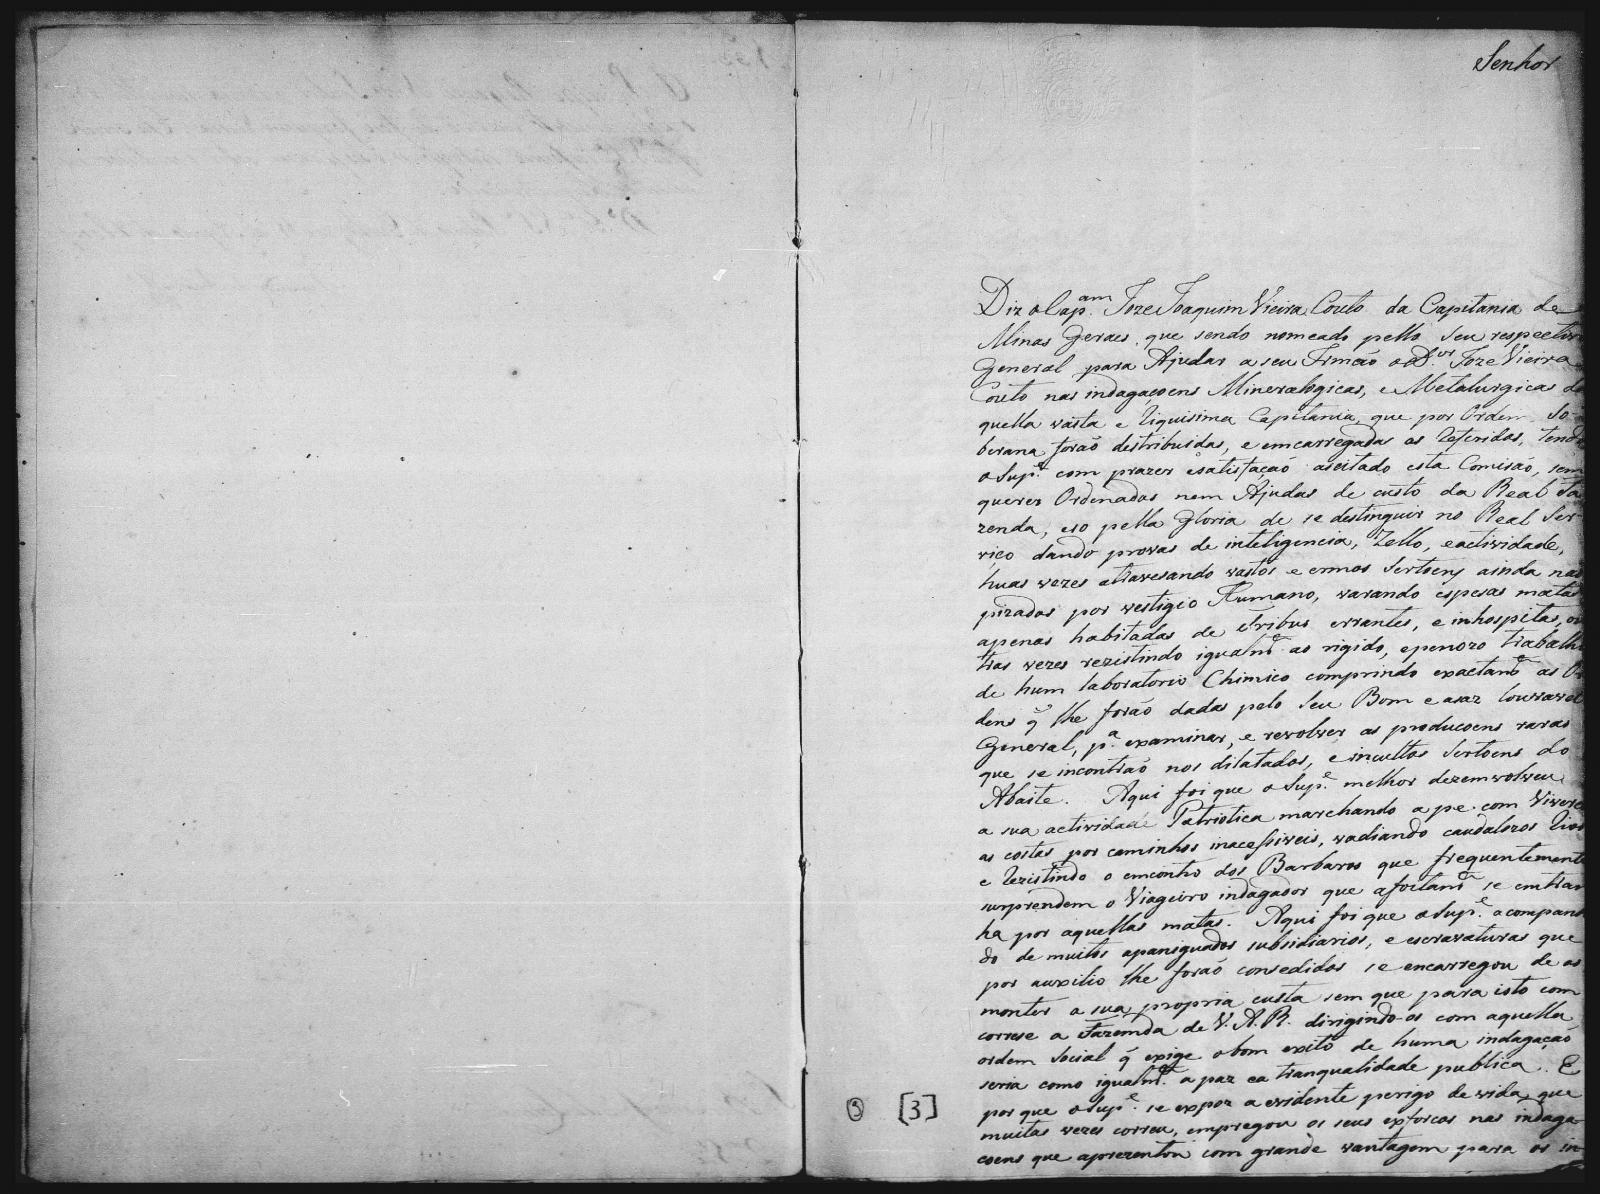 Senhor
Diz o Cap.am Joze Joaquim Vieira Couto da Capitania de
Minas Geraes, que sendo nomeado pello Seu respectivo
General para Ajudar a seu Irmão o D.or Joze Vieira
Couto nas indagaçoens Mineralogicas, e Metalurgicas da
quella vasta e riquisima Capitania, que por Ordem So-
berana forão destribuidas, e emcarregadas as referidas, tendo
o Sup.e com prazer e satisfação aseitado esta Comisão, sem
querer Ordenados nem Ajudas de custo da Real Fa
zenda, e só pella Gloria de se destinguir no Real Ser-
viço dando provas de inteligencia, Zello, e actividade,
huas vezes atravesando vastos e ermos Sertoens ainda nao
pizados por vestigio Humano, varando espesas matas
apenas habitadas de tribus errantes, e inhospitas, ou
tras vezes rezistindo igualm.e ao rigido, e penozo trabalho
de hum laboratorio Chimico comprindo exactam.e as Or
dens q̃ lhe forão dadas pelo Seu Bom e asaz louvavel
General, p.a examinar, e revolver as producoens raras
que se incontrão nos dilatados, e incultos Sertoens do
Abaite. Aqui foi que o Sup.e melhor dezemvolveu
a sua actividade Patriotica marchando a pe com Viveres
as costas por caminhos inacessiveis, vadiando caudalozos rios
e rezistindo o emcontro dos Barbaros que frequentemente
surprendem o Viageiro indagador que afoitam.e se entran
ha por aquellas matas. Aqui foi que o Sup.e acompanha
do de muitos apaniguados subsidiarios, e escravaturas que
por auxilio lhe forão consedidos se encarregou de os
monter a sua propria custa sem que para isto com
correse a Fazemda de V. A. R. dirigindo-os com aquella
ordem social q̃ exige o bom exito de huma indagação
seria como igualm.e a paz e a tranqualidade publica. E
por que o Sup.e se expoz a evidente perigo de vida que
muitas vezes correu, empregou os seus exforcos nas indaga
coens que aprezentou com grande vantagem para os in-
3 [3]